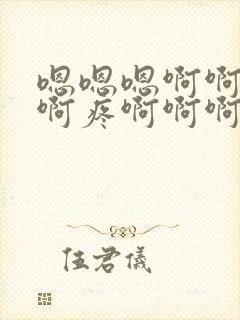 嗯嗯嗯啊啊
啊疼啊啊啊
伍君儀